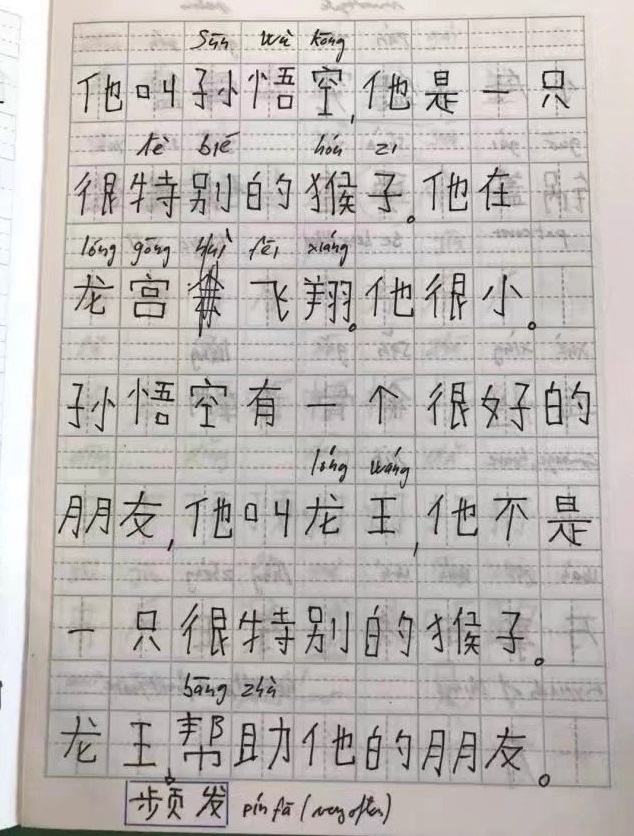 Sūn wù kōng
他叫孙悟空,他是一只
tè bié hóu zi
很特别的猴子。他在
lóng gōng fēi xiáng
龙宫飞翔。他很小。
孙悟空有一个很好的
lóng wáng
朋友,他叫龙王,他不是
一只很特别的猴子。
bāng zhù
龙王帮助他的朋友。
频发 pín fā (very often)